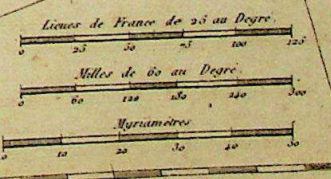 Lieues de France de 25 au Degré.
0 25 50 75 100 125
Milles de 60 au Degré.
0 60 120 180 240 300
Myriamètres
0 10 20 30 40 50